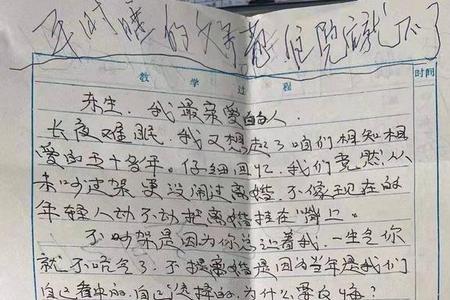 时睡的 他院就不了
教学过程 时间
东生，我最亲爱的人
长夜难眠，我又想起了咱们相知相
爱的五十多年。仔细回忆，我们竟然从
未吵过架更没闹过离婚，不像现在的
年轻人动不动把离婚挂在嘴上。
不吵架是因为你总让着我，一生气你
就不吭气了；不提离婚是因为当年是我们
自己看中的，自己选择的，为什么要反悔？